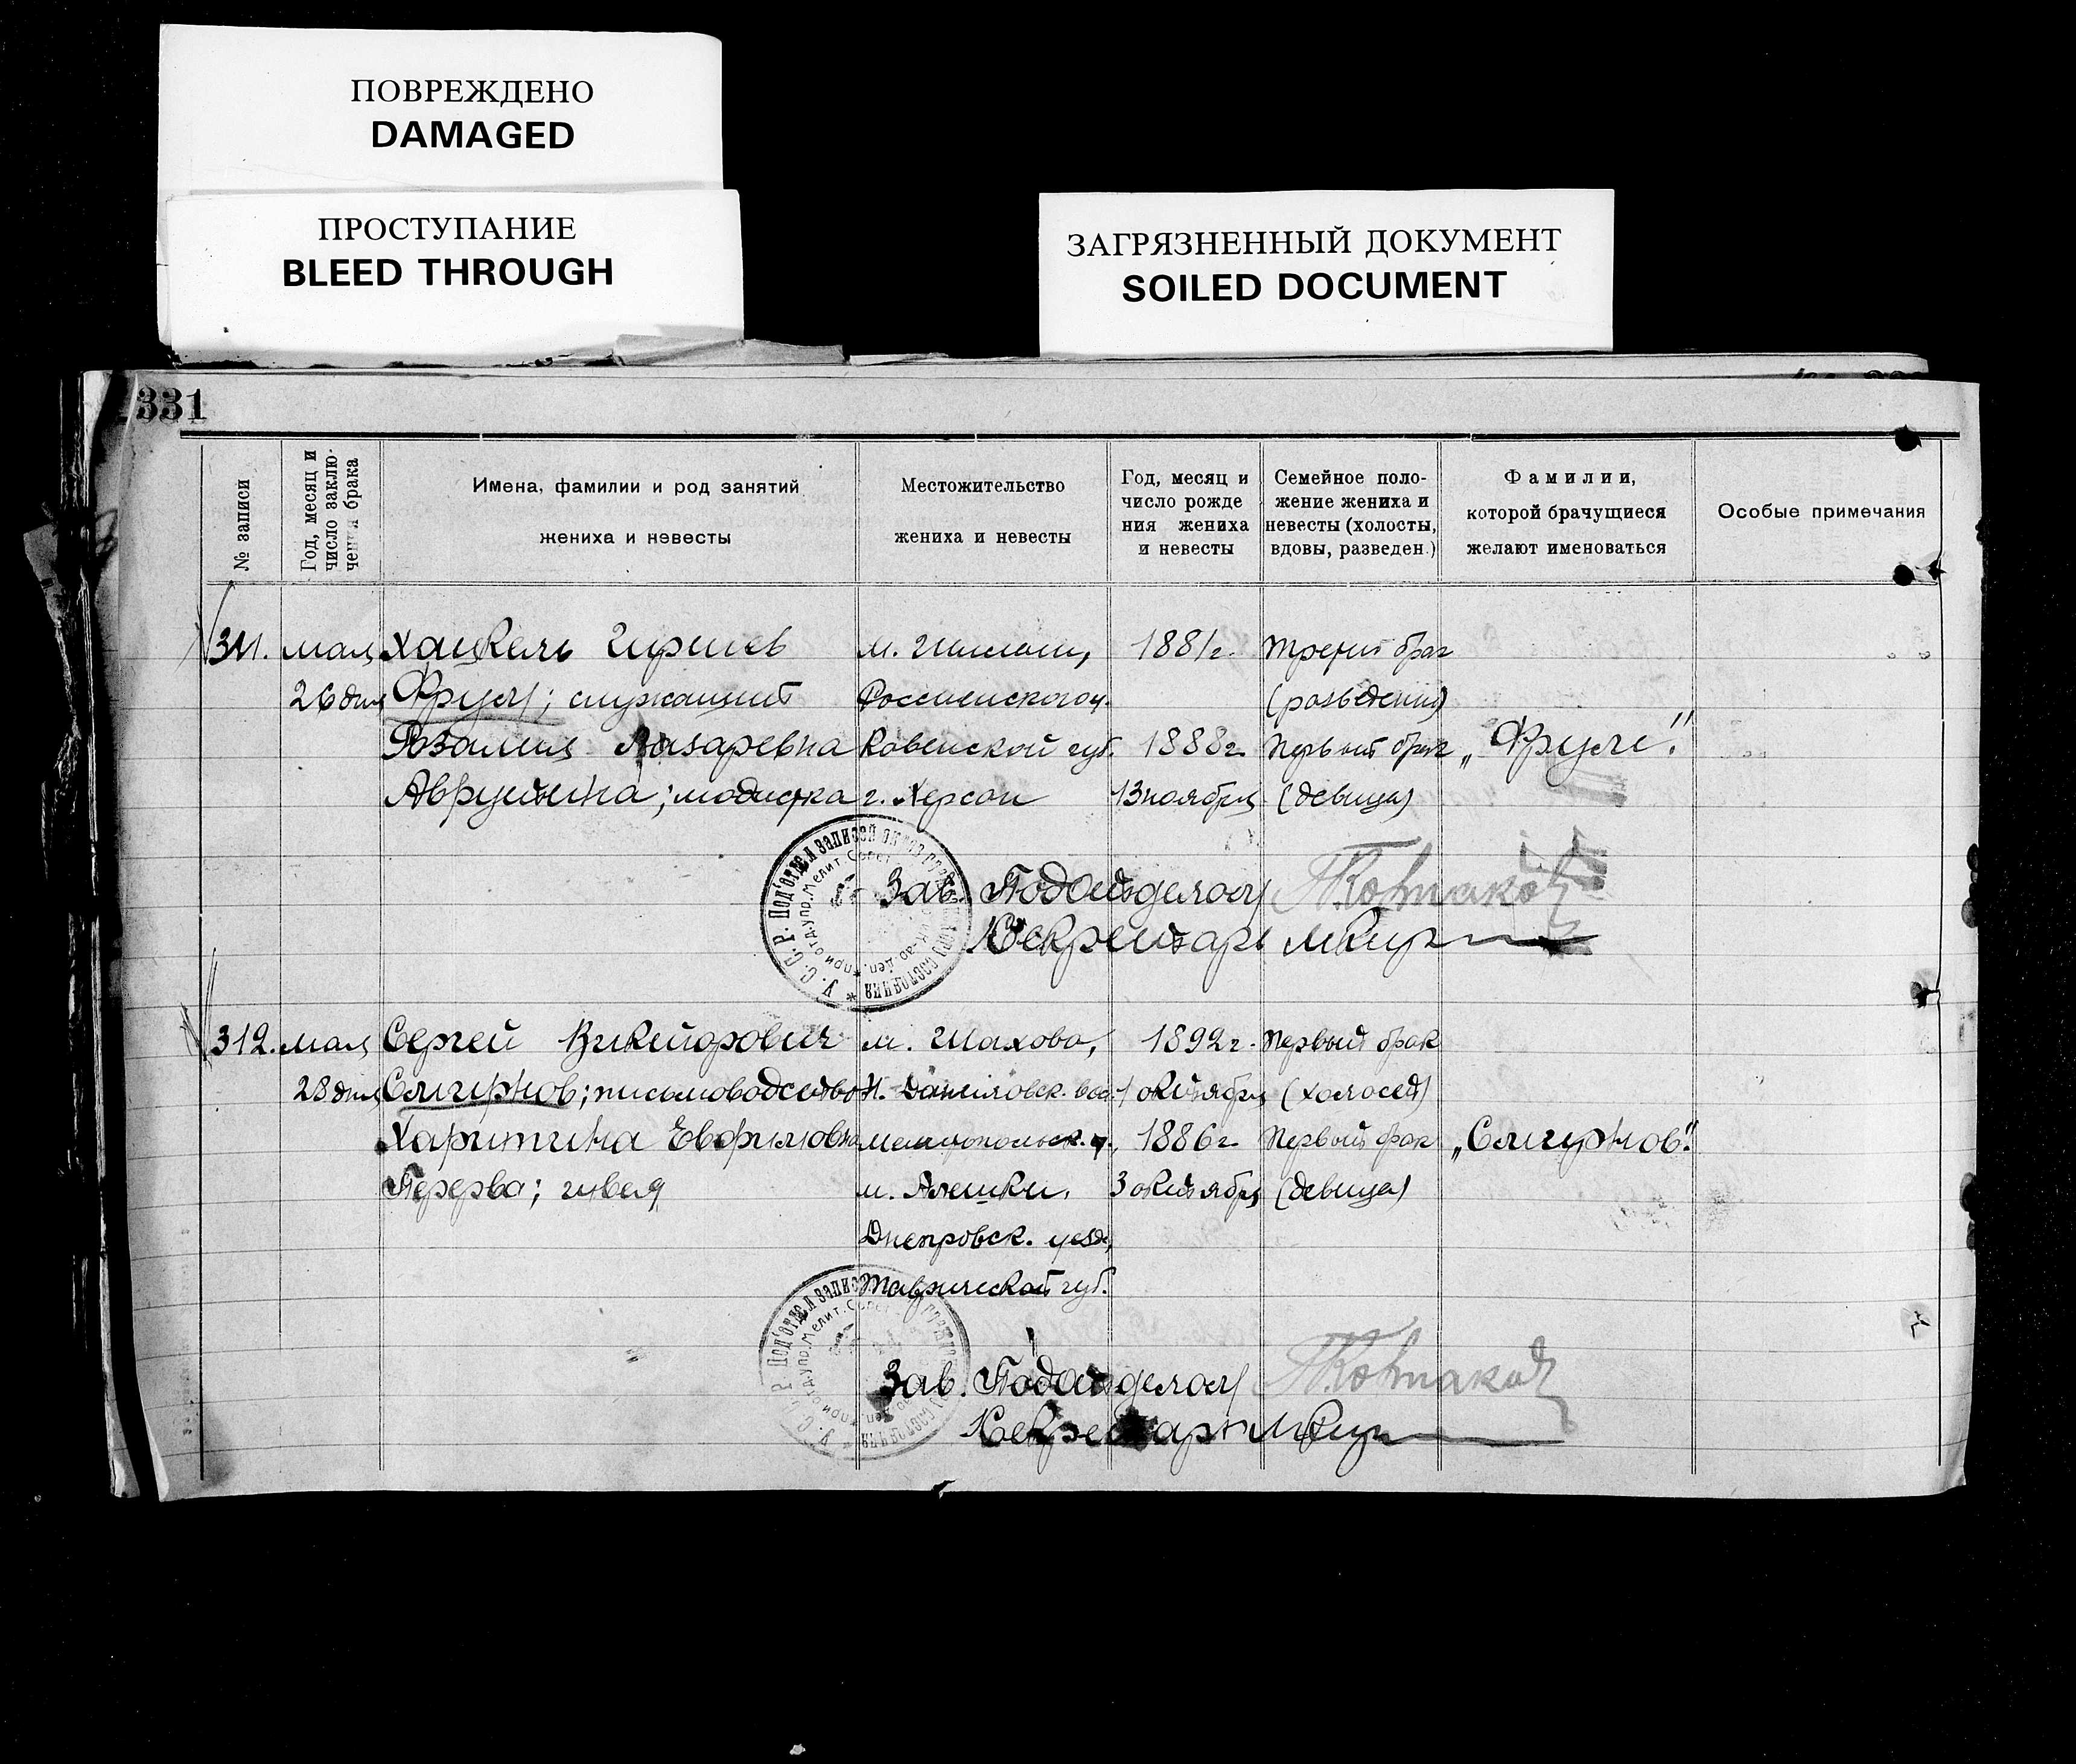 ПОВРЕЖДЕНО
DAMAGED
ПРОСТУПАНИЕ
BLEED THROUGH
ЗАГРЯЗНЕННЫЙ ДОКУМЕНТ
SOILED DOCUMENT
331
№ записи
Год, месяц и
число заклю-
чения брака
Имена, фамилии и род занятий
жениха и невесты
Местожительство
жениха и невесты
Год, месяц и
число рожде
ния жениха
и невесты
Семейное поло-
жение жениха и
невесты (холосты,
вдовы, разведен.)
Фамилии,
которой брачущиеся
желают именоваться
Особые примечания
311. мая Хацкель Гиршев м. 1881г. третий брак
26 дня служащий Россиенского у. (разведений)
Розалия Лазаревна Ковенской губ. 1888г. Первый брак
Аврутина; модистка г. Херсон 13 ноября (девица)
Зав. Подотделом
Секретарь
312. мая Сергей Викторович м. Шахово, 1892г. Первый брак
28 дня Смирнов; письмоводство Н. Даниловск. вол. 1 октября (холост)
Харитина Мелитопольск. у. 1886г. Первый брак „Смирнов".
Перерва; швея м. Алешки, 3 октября (девица)
Днепровск. уезд,
Таврической губ.
Зав. Подотделом
Секретарь
У. С. С. Р. Под'отдел записей актов гражданского состояния